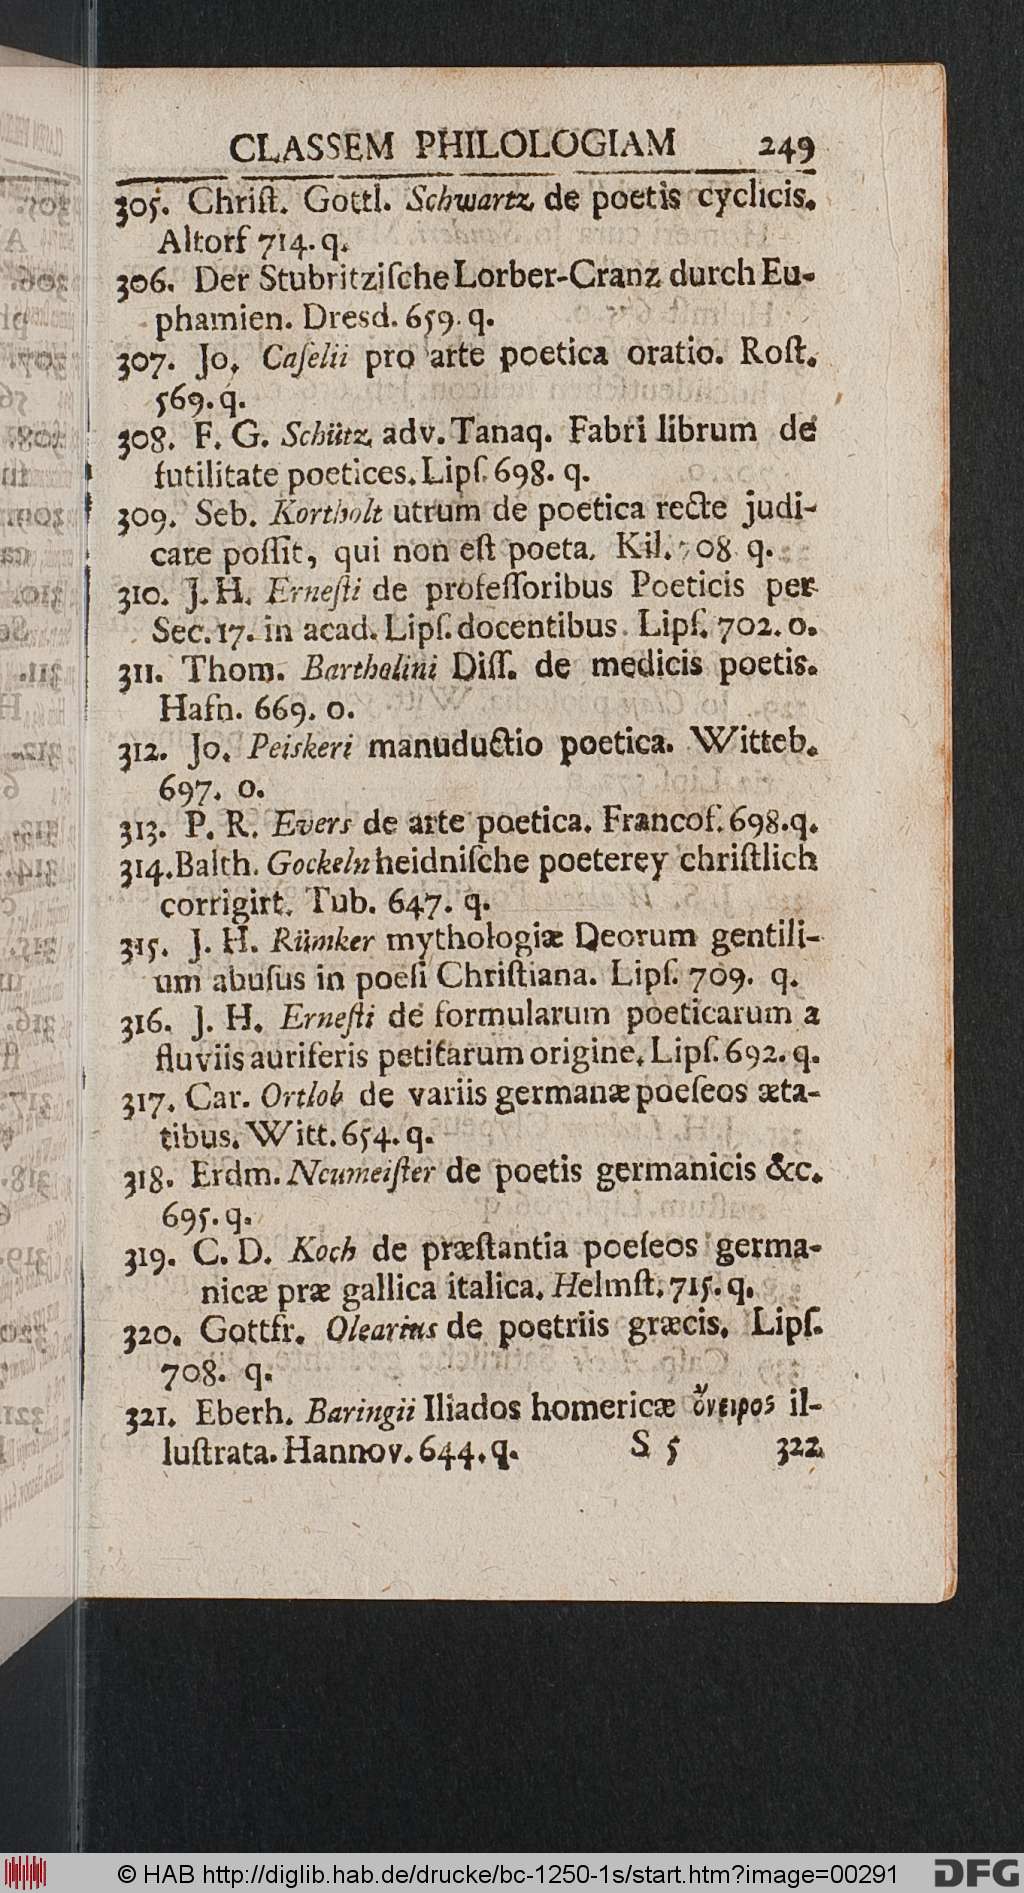 CLASSEM PHILOLOGIAM 249
305. Chriſt. Gottl. Schwartz de poetis cyclicis.
Altorf 714. q.
306. Der Stubritziſche Lorber-Cranz durch Eu-
phamien. Dresd. 659. q.
307. Jo. Caſelii pro arte poetica oratio. Roſt.
569. q.
308. F. G. Schütz adv. Tanaq. Fabri librum de
futilitate poetices. Lipſ. 698. q.
309. Seb. Kortholt utrum de poetica recte judi-
care poſſit, qui non eſt poeta. Kil. 708 q.
310. J. H. Erneſti de profeſſoribus Poeticis per
Sec. 17. in acad. Lipſ. docentibus. Lipſ. 702. o.
311. Thom. Bartholini Diſſ. de medicis poetis.
Hafn. 669. o.
312. Jo. Peiskeri manuductio poetica. Witteb.
697. o.
313. P. R. Evers de arte poetica. Francof. 698. q.
314. Balth. Gockeln heidniſche poeterey chriſtlich
corrigirt. Tub. 647. q.
315. J. H. Rümker mythologiæ Deorum gentili-
um abuſus in poeſi Chriſtiana. Lipſ. 709. q.
316. J. H. Erneſti de formularum poeticarum a
fluviis auriferis petitarum origine. Lipſ. 692. q.
317. Car. Ortlob de variis germanæ poeſeos æta-
tibus. Witt. 654. q.
318. Erdm. Neumeiſter de poetis germanicis &c.
695. q.
319. C. D. Koch de præſtantia poeſeos germa-
nicæ præ gallica italica. Helmſt. 715. q.
320. Gottfr. Olearius de poetriis græcis. Lipſ.
708. q.
321. Eberh. Baringii Iliados homericæ ὄνειρος il-
luſtrata. Hannov. 644. q. S 5 322.
© HAB http://diglib.hab.de/drucke/bc-1250-1s/start.htm?image=00291 DFG